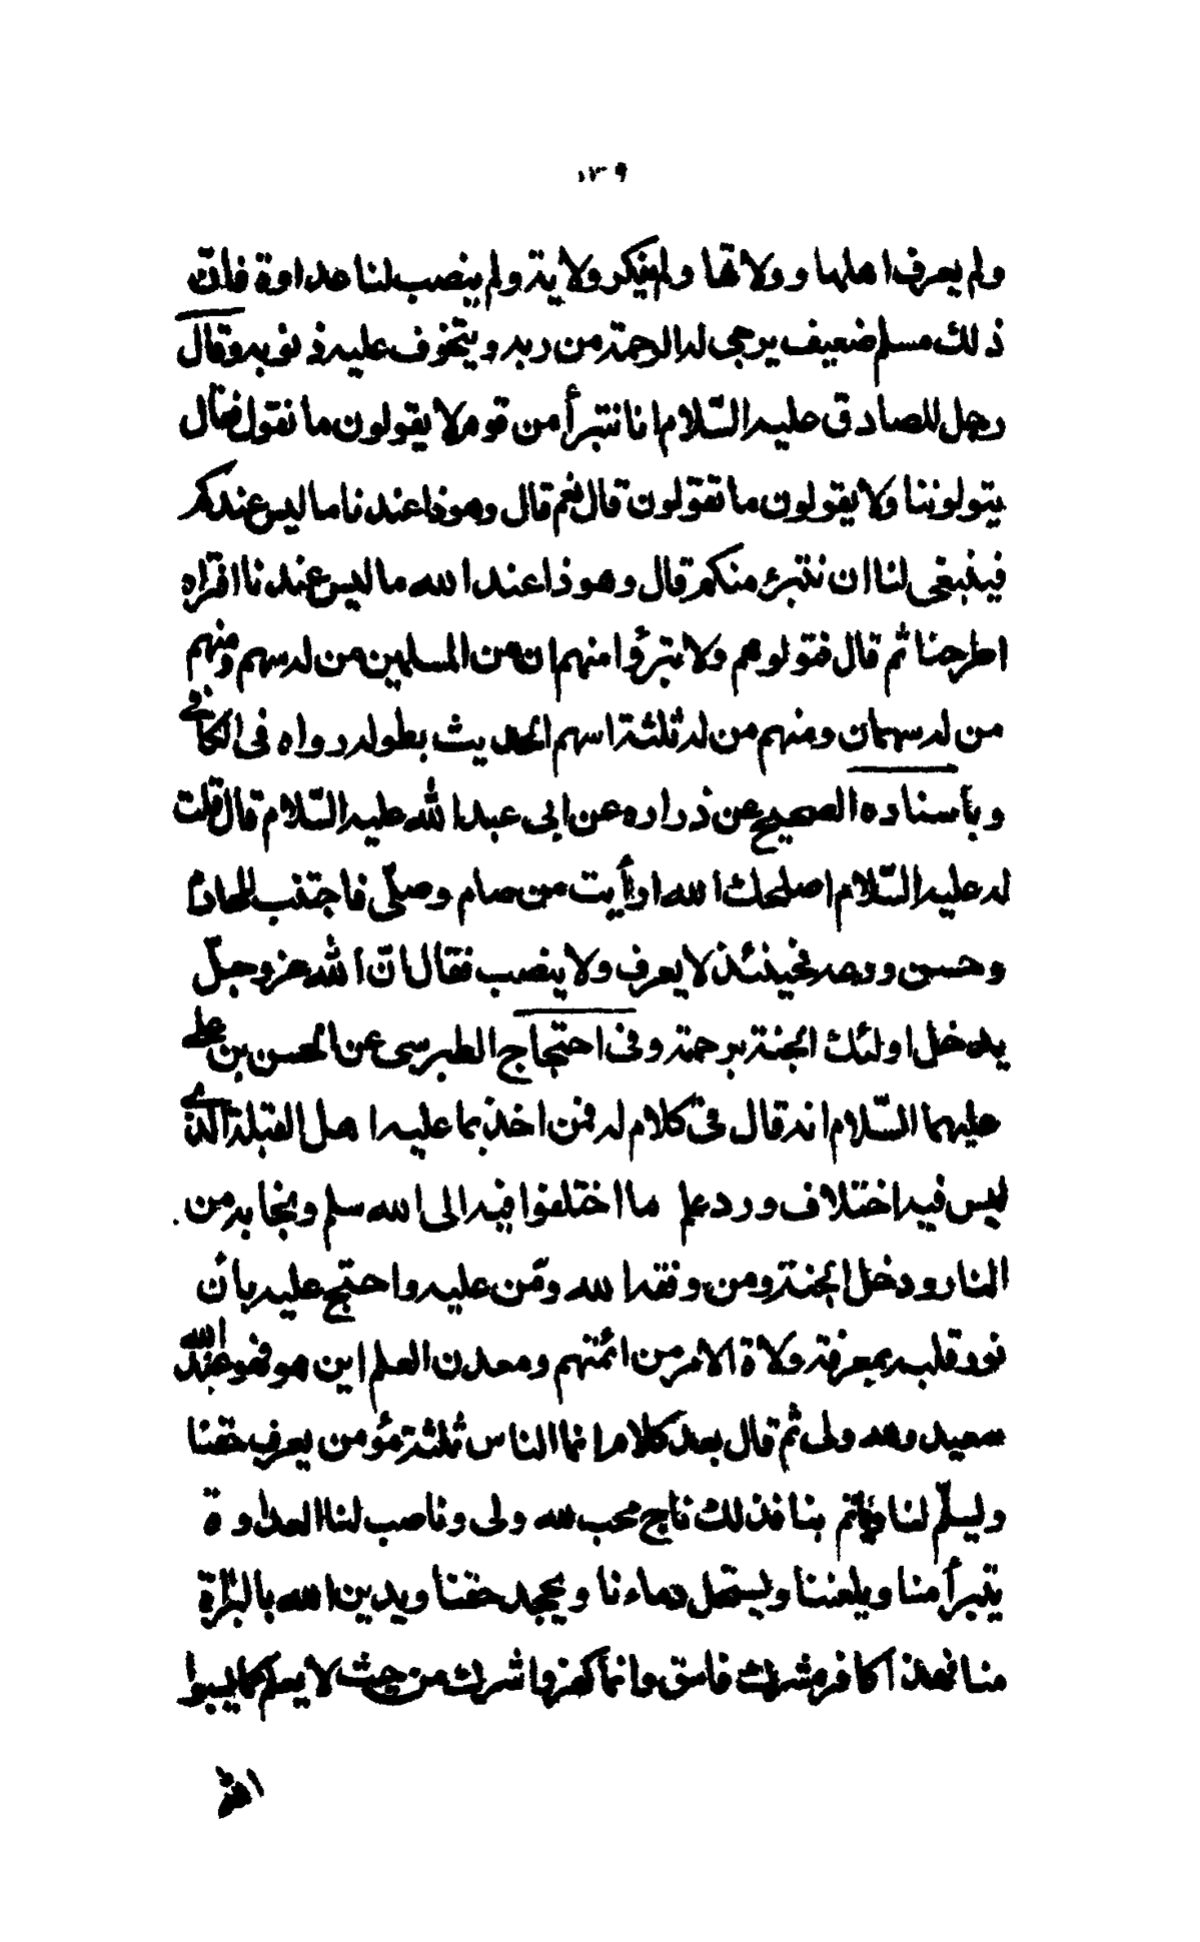 ١٣٩
ولم يعرف اهلها وولاتها ولم ينكر ولايته ولم ينصب لنا عداوة فانّ
ذلك مسلم ضعيف يرجى له الرحمة من ربه ويتخوف عليه ذنوبه وقال
رجل للصادق عليه السّلام انا نتبرأ من قوم لا يقولون ما نقول فقال
يتولوننا ولا يقولون ما تقولون قال نعم قال وهوذا عندنا ما ليس عندكم
فينبغى لنا ان نتبرئ منكم قال وهوذا عند الله ما ليس عندنا افتراه
اطرحنا ثم قال فتولوهم ولا تبرؤا منهم ان من المسلمين من له سهم ومنهم
من له سهمان ومنهم من له ثلثة اسهم الحديث بطوله رواه فى الكافى
وبأسناده الصحيح عن زراره عن ابى عبد الله عليه السّلام قال قلت
له عليه السّلام اصلحك الله ارأيت من صام وصلّى فاجتنب المحارم
وحسن ورعه فحينئذ لا يعرف ولا ينصب فقال انّ الله عز وجلّ
يدخل اولئك الجنة برحمته وفى احتجاج الطبرسى عن الحسن بن على
عليهما السّلام انه قال فى كلام له فمن اخذ بما عليه اهل القبلة الذى
ليس فيه اختلاف ورد علم ما اختلفوا فيه الى الله سلم ونجا به من
النار ودخل الجنة ومن وفقه الله ومّن عليه واحتج عليه بأن
نور قلبه بمعرفة ولاة الامر من ائمتهم ومعدن العلم اين هو فهو عند الله
سعيد ولله ولى ثم قال بعد كلام انما الناس ثلثة مؤمن يعرف حقنا
ويسلّم لنا ويأتم بنا فذلك ناج محب لله ولى وناصب لنا العداوة
يتبرأ منا ويلعننا ويستحل دماءنا ويجحد حقنا ويدين الله بالبرائة
منا فهذا كافر مشرك فاسق وانما كفر واشرك من حيث لا يعلم كما يسبوا
الله